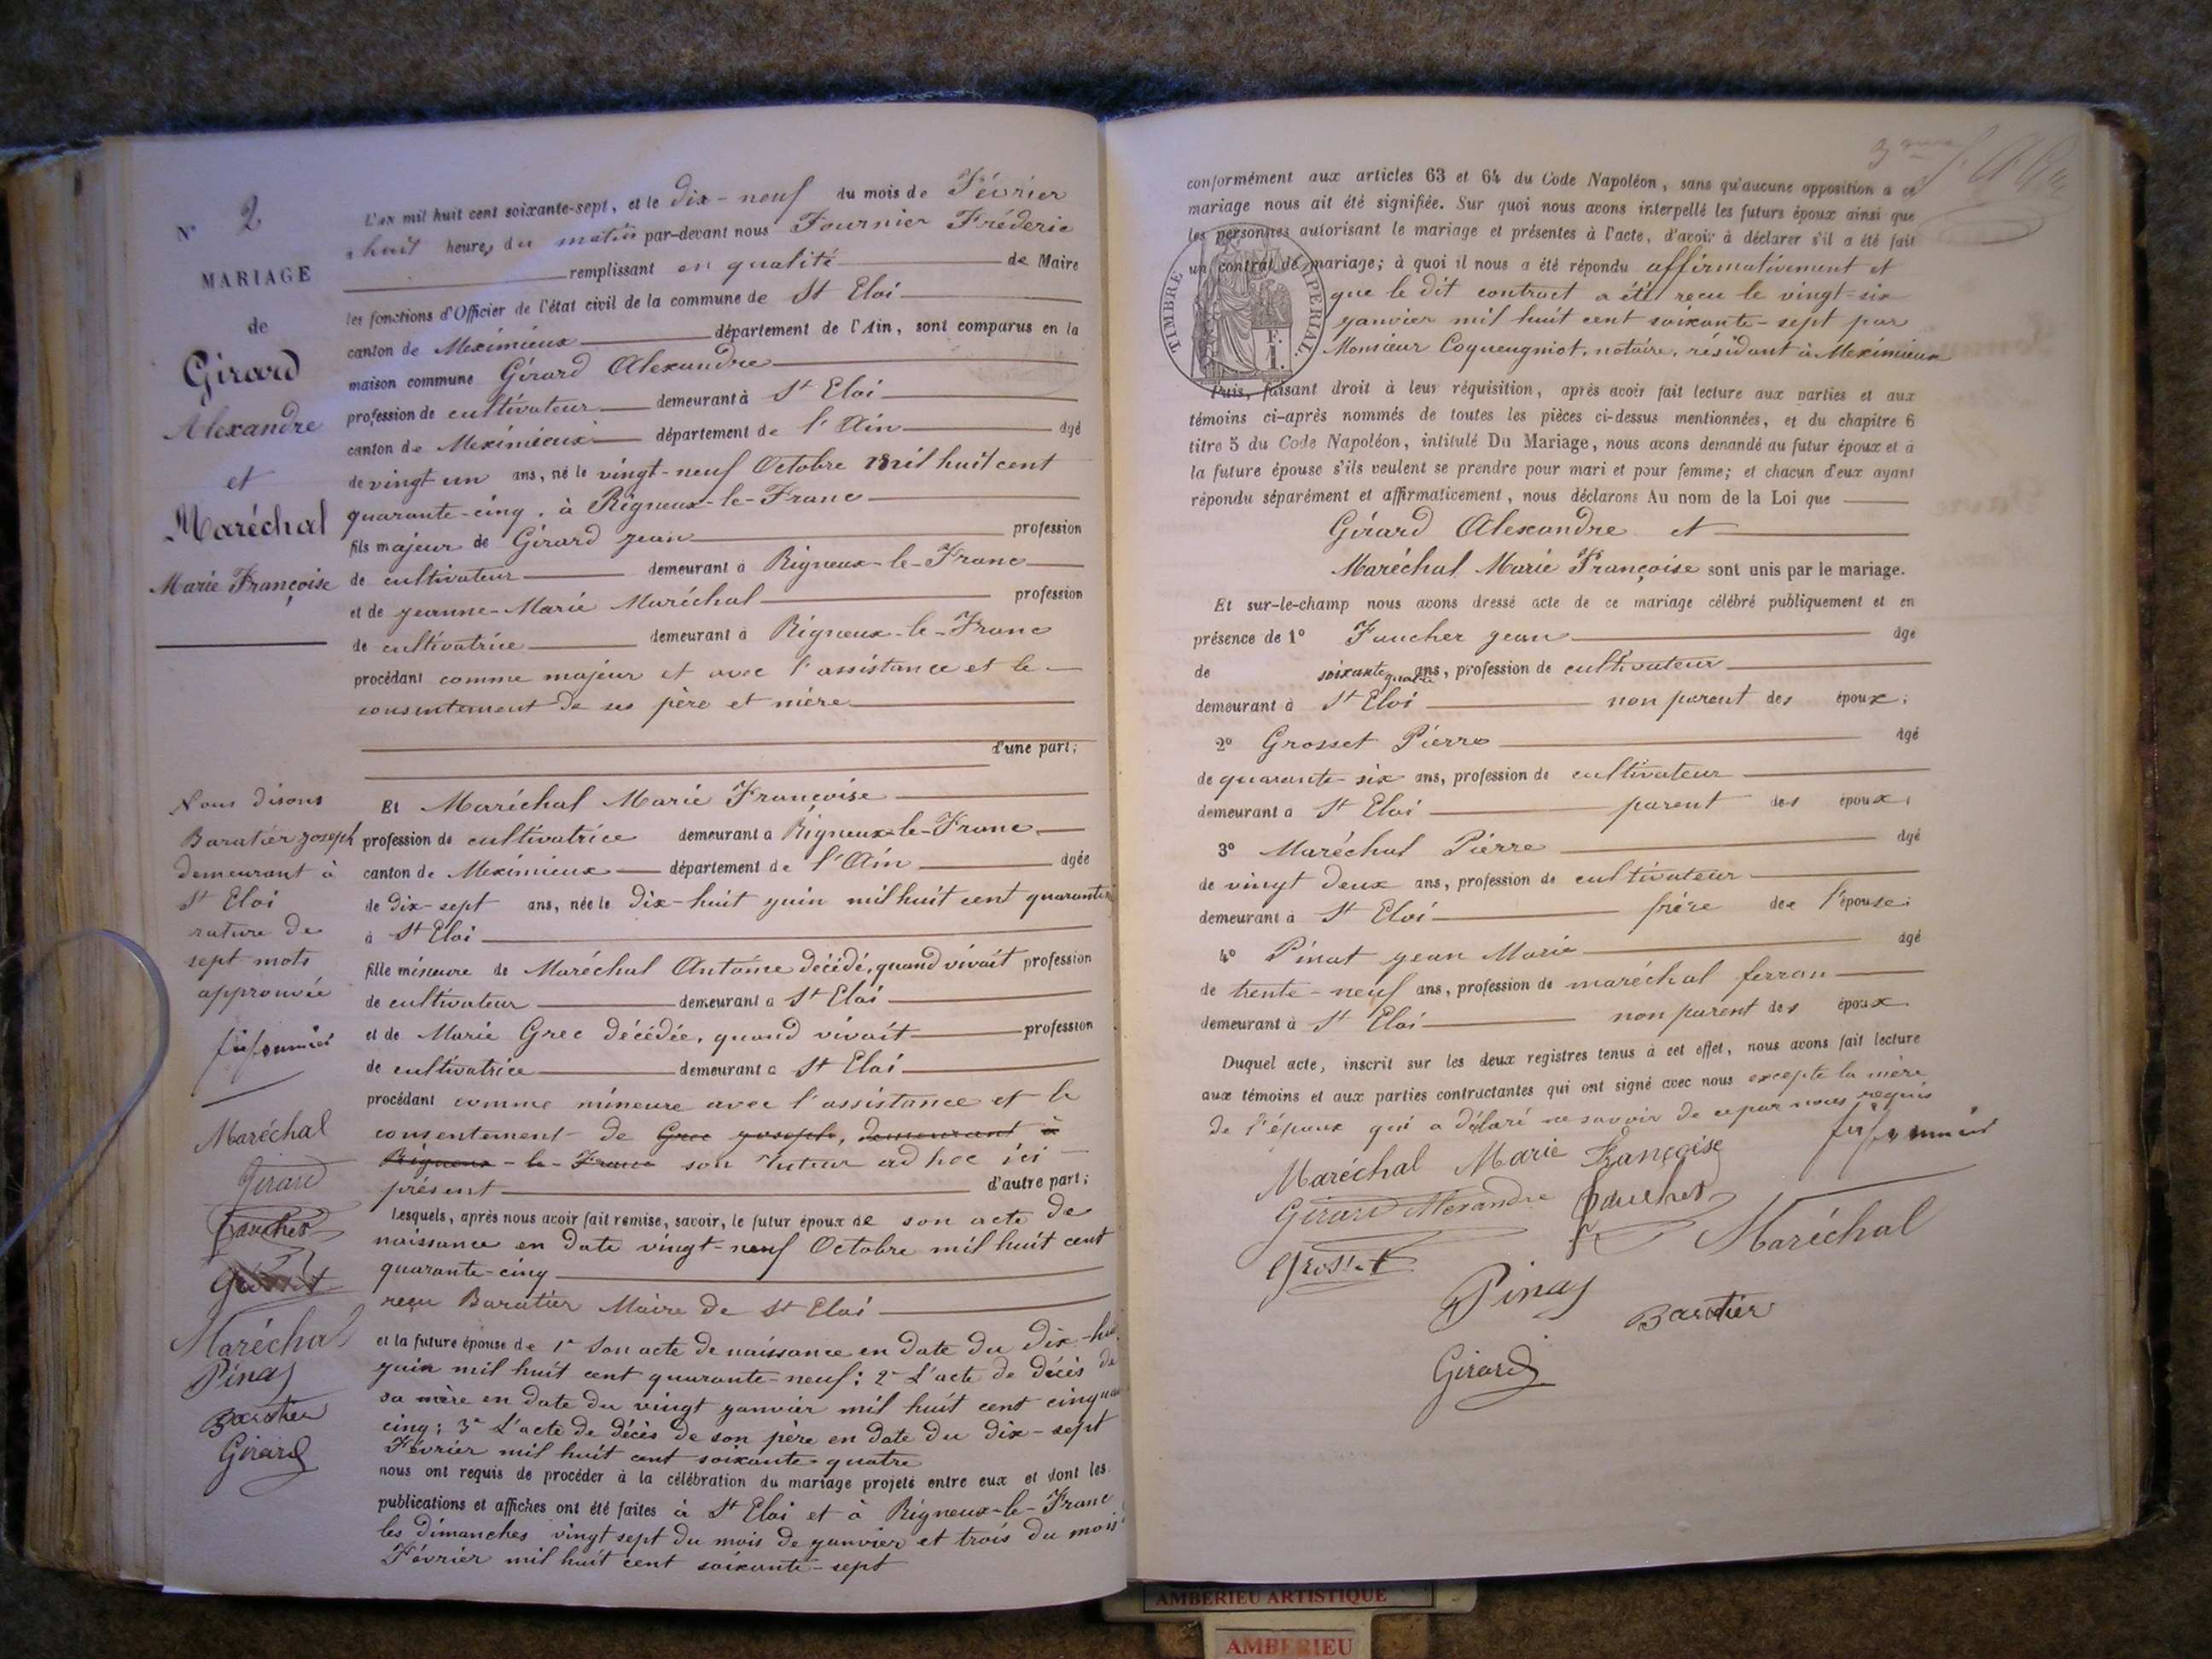 N° 2
MARIAGE
de
Girard
Alexandre
et
Maréchal
Marie Françoise
L'an mil huit cent soixante-sept, et le dix-neuf du mois de Février
à huit heures du matin par-devant nous Fournier Fréderic
remplissant en qualité de Maire
les fonctions d'Officier de l'état civil de la commune de St Eloi
canton de Meximieux département de l'Ain, sont comparus en la
maison commune Gérard Alexandre
profession de cultivateur demeurant à St Eloi
canton de Meximieux département de l'Ain âgé
de vingt un ans, né le vingt-neuf Octobre mil huit cent
quarante-cinq, à Rigneux-le-Franc
fils majeur de Gérard jean profession
de cultivateur demeurant à Rigneux-le-Franc
et de jeanne-Marie Maréchal profession
de cultivatrice demeurant à Rigneux-le-Franc
procédant comme majeur et avec l'assistance et le
consentement de ses père et mère
d'une part;
Et Maréchal Marie Françoise
profession de cultivatrice demeurant à Rigneux-le-Franc
canton de Meximieux département de l'Ain âgée
de dix-sept ans, née le dix-huit juin mil huit cent quarante
à St Eloi
fille mineure de Maréchal Antoine décédé, quand vivait profession
de cultivateur demeurant à St Eloi
et de Marie Grec décédée, quand vivait profession
de cultivatrice demeurant à St Eloi
procédant comme mineure avec l'assistance et le
consentement de Grec joseph, demeurant à
Rigneux-le-Franc son tuteur ad hoc ici
présent d'autre part;
Lesquels, après nous avoir fait remise, savoir, le futur époux de son acte de
naissance en date vingt-neuf Octobre mil huit cent
quarante-cinq
reçu Baratier Maire de St Eloi
et la future épouse de 1° Son acte de naissance en date du dix-hui
juin mil huit cent quarante-neuf; 2° L'acte de décès de
sa mère en date du vingt janvier mil huit cent cinqua
cinq; 3° L'acte de décès de son père en date du dix-sept
Février mil huit cent soixante quatre
nous ont requis de procéder à la célébration du mariage projeté entre eux et dont les
publications et affiches ont été faites à St Eloi et à Rigneux-le-Franc
les dimanches vingt sept du mois de janvier et trois du mois
Février mil huit cent soixante-sept
Nous disons
Baratier joseph
demeurant à
St Eloi
rature de
sept mots
approuvée
Maréchal
Girard
Faucher
Maréchal
Pinas
Baratier
Girard
conformément aux articles 63 et 64 du Code Napoléon, sans qu'aucune opposition à ce
mariage nous ait été signifiée. Sur quoi nous avons interpellé les futurs époux ainsi que
les personnes autorisant le mariage et présentes à l'acte, d'avoir à déclarer s'il a été fait
un contrat de mariage; à quoi il nous a été répondu affirmativement et
que le dit contract a été recu le vingt-six
janvier mil huit cent soixante-sept par
Monsieur Coquengniot, notaire, résidant à Meximieux
TIMBRE IMPERIAL
F. I.
Puis, faisant droit à leur réquisition, après avoir fait lecture aux parties et aux
témoins ci-après nommés de toutes les pièces ci-dessus mentionnées, et du chapitre 6
titre 5 du Code Napoléon, intitulé Du Mariage, nous avons demandé au futur époux et à
la future épouse s'ils veulent se prendre pour mari et pour femme; et chacun d'eux ayant
répondu séparément et affirmativement, nous déclarons Au nom de la Loi que
Gérard Alexandre et
Maréchal Marie Françoise sont unis par le mariage.
Et sur-le-champ nous avons dressé acte de ce mariage célébré publiquement et en
présence de 1° Faucher jean âgé
de soixante quatre ans, profession de cultivateur
demeurant à St Eloi non parent des époux;
2° Grosset Pierre âgé
de quarante-six ans, profession de cultivateur
demeurant à St Eloi parent des époux;
3° Maréchal Pierre âgé
de vingt deux ans, profession de cultivateur
demeurant à St Eloi frère de l'épouse;
4° Pinat jean Marie âgé
de trente-neuf ans, profession de maréchal ferran
demeurant à St Eloi non parent des époux
Duquel acte, inscrit sur les deux registres tenus à cet effet, nous avons fait lecture
aux témoins et aux parties contractantes qui ont signé avec nous excepte la mère
de l'époux qui a déclaré ne savoir de ce par nous requis
Maréchal Marie Françoise
Girard Alexandre
Faucher
Grosset
Maréchal
Pinas
Baratier
Girard
AMBERIEU ARTISTIQUE
AMBERIEU